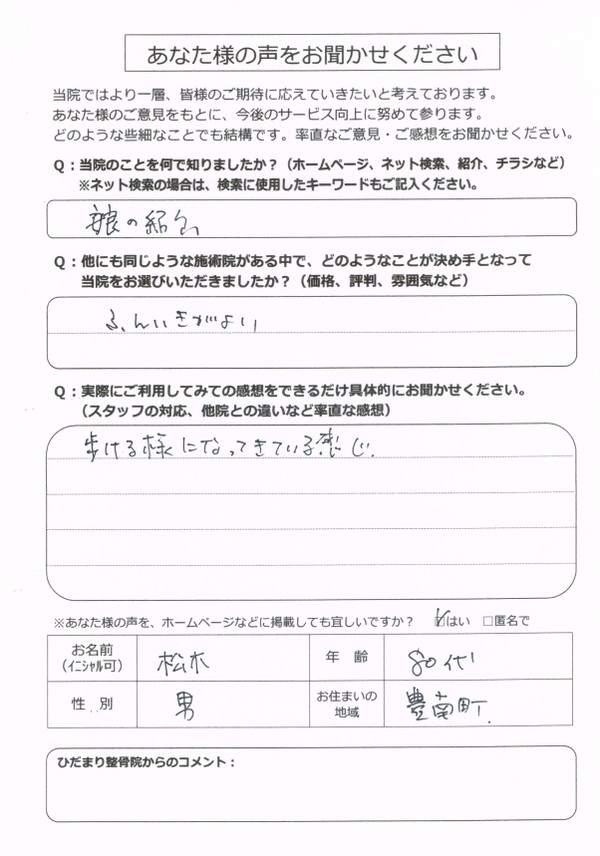 あなた様の声をお聞かせください
当院ではより一層、皆様のご期待に応えていきたいと考えております。
あなた様のご意見をもとに、今後のサービス向上に努めて参ります。
どのような些細なことでも結構です。率直なご意見・ご感想をお聞かせください。
Q：当院のことを何で知りましたか？（ホームページ、ネット検索、紹介、チラシなど）
※ネット検索の場合は、検索に使用したキーワードもご記入ください。
娘の紹介
Q：他にも同じような施術院がある中で、どのようなことが決め手となって
当院をお選びいただきましたか？（価格、評判、雰囲気など）
ふんいきがよい
Q：実際にご利用してみての感想をできるだけ具体的にお聞かせください。
（スタッフの対応、他院との違いなど率直な感想）
歩ける様になってきている感じ.
※あなた様の声を、ホームページなどに掲載しても宜しいですか？ ☑はい □匿名で
お名前 松木 年 齢 80代
（ｲﾆｼｬﾙ可）
性 別 男 お住まいの 豊南町.
地域
ひだまり整骨院からのコメント：